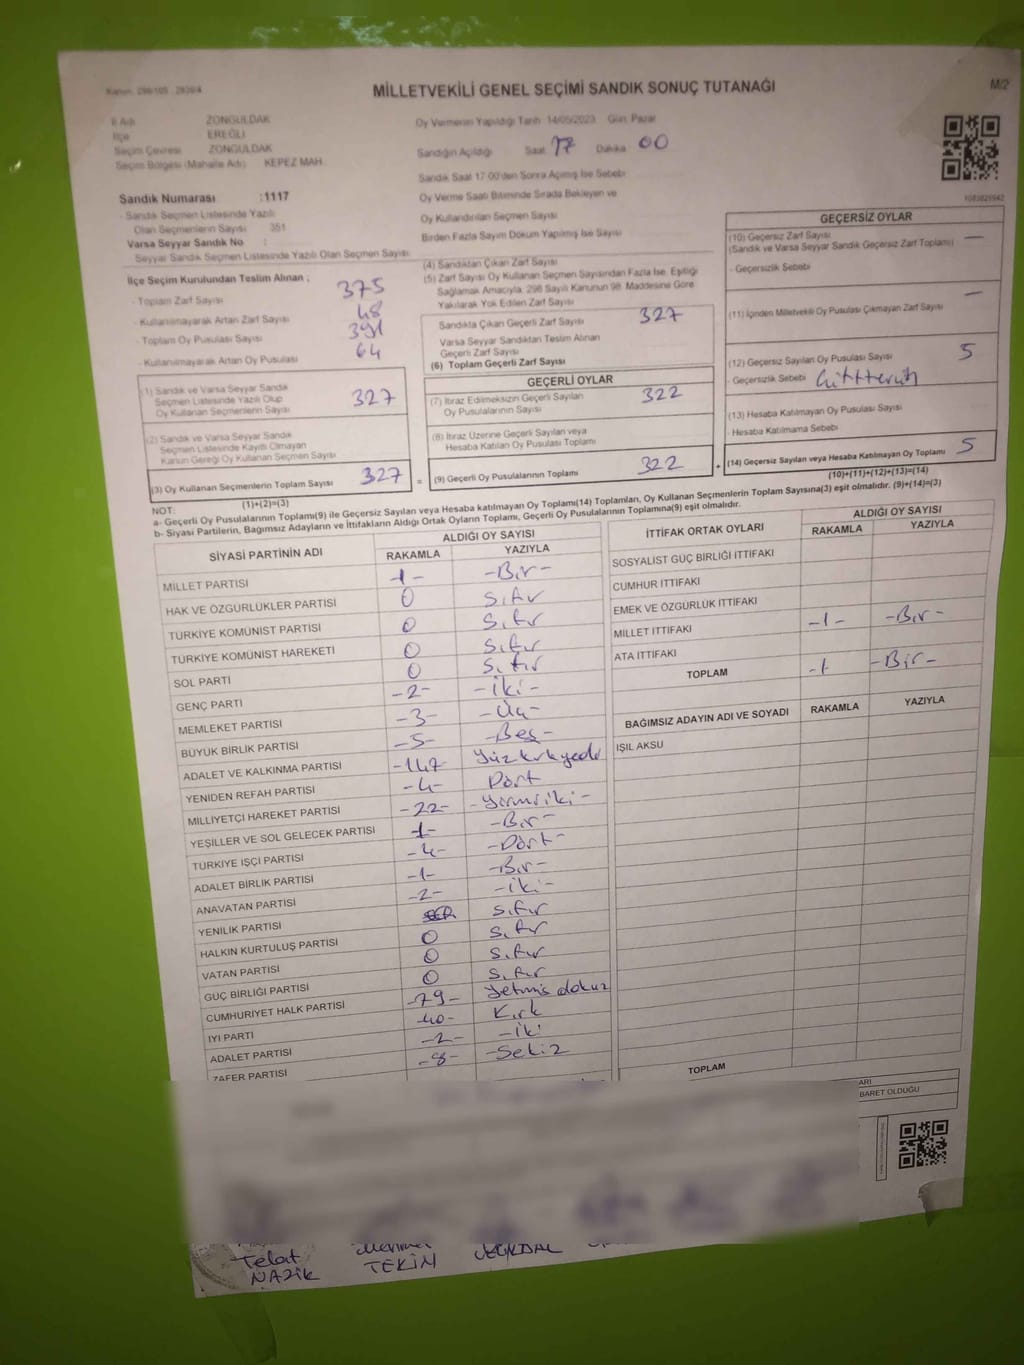 Kanun: 298/105 - 2839/4
MİLLETVEKİLİ GENEL SEÇİMİ SANDIK SONUÇ TUTANAĞI
M/2
İl Adı ZONGULDAK
İlçe EREĞLİ
Seçim Çevresi ZONGULDAK
Seçim Bölgesi (Mahalle Adı) KEPEZ MAH.
Oy Vermenin Yapıldığı Tarih 14/05/2023 Gün: Pazar
Sandığın Açıldığı Saat 17 Dakika 00
Sandık Saat 17:00'den Sonra Açılmış İse Sebebi
Sandık Numarası :1117
- Sandık Seçmen Listesinde Yazılı
Olan Seçmenlerin Sayısı 351
Varsa Seyyar Sandık No :
Seyyar Sandık Seçmen Listesinde Yazılı Olan Seçmen Sayısı
Oy Verme Saati Bitiminde Sırada Bekleyen ve
Oy Kullandırılan Seçmen Sayısı
Birden Fazla Sayım Döküm Yapılmış İse Sayısı
İlçe Seçim Kurulundan Teslim Alınan ;
- Toplam Zarf Sayısı 375
- Kullanılmayarak Artan Zarf Sayısı 48
- Toplam Oy Pusulası Sayısı 391
- Kullanılmayarak Artan Oy Pusulası 64
(1) Sandık ve Varsa Seyyar Sandık
Seçmen Listesinde Yazılı Olup
Oy Kullanan Seçmenlerin Sayısı 327
(2) Sandık ve Varsa Seyyar Sandık
Seçmen Listesinde Kayıtlı Olmayan
Kanun Gereği Oy Kullanan Seçmen Sayısı
(3) Oy Kullanan Seçmenlerin Toplam Sayısı 327
(1)+(2)=(3)
(4) Sandıktan Çıkan Zarf Sayısı
(5) Zarf Sayısı Oy Kullanan Seçmen Sayısından Fazla İse, Eşitliği
Sağlamak Amacıyla, 298 Sayılı Kanunun 98. Maddesine Göre
Yakılarak Yok Edilen Zarf Sayısı
Sandıkta Çıkan Geçerli Zarf Sayısı 327
Varsa Seyyar Sandıktan Teslim Alınan
Geçerli Zarf Sayısı
(6) Toplam Geçerli Zarf Sayısı
GEÇERLİ OYLAR
(7) İtiraz Edilmeksizin Geçerli Sayılan
Oy Pusulalarının Sayısı 322
(8) İtiraz Üzerine Geçerli Sayılan veya
Hesaba Katılan Oy Pusulası Toplamı
= (9) Geçerli Oy Pusulalarının Toplamı 322 +
1083825942
GEÇERSİZ OYLAR
(10) Geçersiz Zarf Sayısı —
(Sandık ve Varsa Seyyar Sandık Geçersiz Zarf Toplamı)
- Geçersizlik Sebebi
(11) İçinden Milletvekili Oy Pusulası Çıkmayan Zarf Sayısı —
(12) Geçersiz Sayılan Oy Pusulası Sayısı 5
- Geçersizlik Sebebi
(13) Hesaba Katılmayan Oy Pusulası Sayısı
- Hesaba Katılmama Sebebi
(14) Geçersiz Sayılan veya Hesaba Katılmayan Oy Toplamı 5
(10)+(11)+(12)+(13)=(14)
NOT:
a- Geçerli Oy Pusulalarının Toplamı(9) ile Geçersiz Sayılan veya Hesaba katılmayan Oy Toplamı(14) Toplamları, Oy Kullanan Seçmenlerin Toplam Sayısına(3) eşit olmalıdır. (9)+(14)=(3)
b- Siyasi Partilerin, Bağımsız Adayların ve İttifakların Aldığı Ortak Oyların Toplamı, Geçerli Oy Pusulalarının Toplamına(9) eşit olmalıdır.
SİYASİ PARTİNİN ADI ALDIĞI OY SAYISI
RAKAMLA YAZIYLA
MİLLET PARTİSİ -1- -Bir-
HAK VE ÖZGÜRLÜKLER PARTİSİ 0 Sıfır
TÜRKİYE KOMÜNİST PARTİSİ 0 Sıfır
TÜRKİYE KOMÜNİST HAREKETİ 0 Sıfır
SOL PARTİ 0 Sıfır
GENÇ PARTİ -2- -İki-
MEMLEKET PARTİSİ -3- -Üç-
BÜYÜK BİRLİK PARTİSİ -5- -Beş-
ADALET VE KALKINMA PARTİSİ -147 Yüzkırkyedi
YENİDEN REFAH PARTİSİ -4- Dört
MİLLİYETÇİ HAREKET PARTİSİ -22- -Yirmiiki-
YEŞİLLER VE SOL GELECEK PARTİSİ -1- -Bir-
TÜRKİYE İŞÇİ PARTİSİ -4- -Dört-
ADALET BİRLİK PARTİSİ -1- -Bir-
ANAVATAN PARTİSİ -2- -iki-
YENİLİK PARTİSİ sıfır
HALKIN KURTULUŞ PARTİSİ 0 Sıfır
VATAN PARTİSİ 0 Sıfır
GÜÇ BİRLİĞİ PARTİSİ 0 Sıfır
CUMHURİYET HALK PARTİSİ -79- Yetmiş dokuz
İYİ PARTİ -40- Kırk
ADALET PARTİSİ -2- -İki
ZAFER PARTİSİ -8- -Sekiz
İTTİFAK ORTAK OYLARI ALDIĞI OY SAYISI
RAKAMLA YAZIYLA
SOSYALİST GÜÇ BİRLİĞİ İTTİFAKI
CUMHUR İTTİFAKI
EMEK VE ÖZGÜRLÜK İTTİFAKI
MİLLET İTTİFAKI -1- -Bir-
ATA İTTİFAKI
TOPLAM -1- -Bir-
BAĞIMSIZ ADAYIN ADI VE SOYADI RAKAMLA YAZIYLA
IŞIL AKSU
TOPLAM
ARI
BARET OLDUĞU
Telat
NAZİK
TEKİN